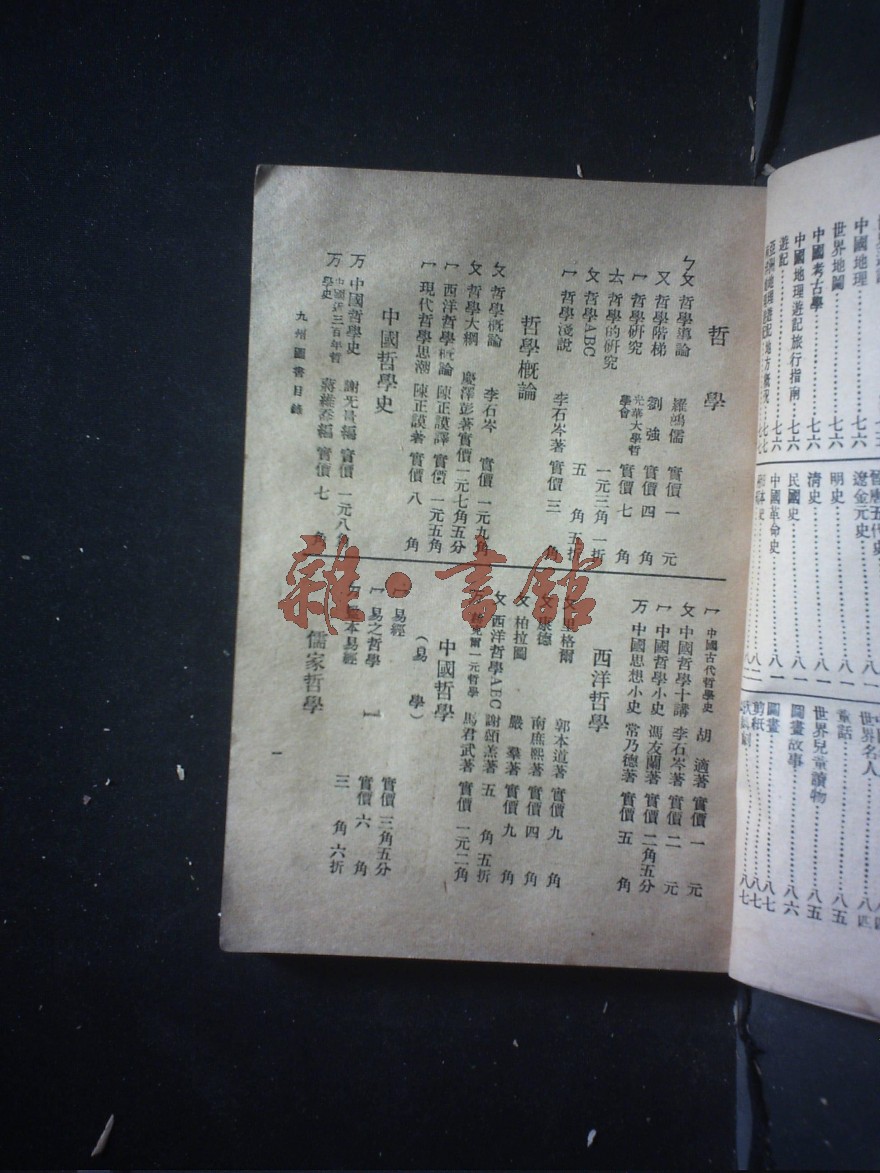 哲學
ㄅㄆ 哲學導論 羅鴻儒 實價 一 元
又 哲學階梯 劉強 實價 四 角
ㄏ 哲學研究 光華大學哲學會 實價 七 角
ㄊ 哲學的研究 一元三角 一折
ㄆ 哲學ABC 五 角 五折
ㄏ 哲學淺說 李石岑著 實價 三 角
哲學概論
ㄆ 哲學概論 李石岑 實價 一元九角
ㄆ 哲學大綱 慶澤彭著 實價 一元七角五分
ㄏ 西洋哲學概論 陳正謨譯 實價 一元五角
ㄏ 現代哲學思潮 陳正謨著 實價 八 角
中國哲學史
万 中國哲學史 謝无量編 實價 一元八角
万 中國近三百年哲學史 蔣維喬編 實價 七 角
九州圖書目錄
ㄏ 中國古代哲學史 胡適著 實價 一 元
ㄆ 中國哲學十講 李石岑著 實價 二 元
ㄏ 中國哲學小史 馮友蘭著 實價 二角五分
万 中國思想小史 常乃德著 實價 五 角
西洋哲學
里格爾 郭本道著 實價 九 角
康德 南庶熙著 實價 四 角
ㄆ 柏拉圖 嚴羣著 實價 九 角
ㄆ 西洋哲學ABC 謝頌羔著 五 角 五折
一元哲學 馬君武著 實價 一元二角
中國哲學
(易 學)
ㄏ 易經 實價 三角五分
ㄏ 易之哲學 實價 六 角
本易經 三 角 六折
儒家哲學
一
雜·書館
中國地理
世界地圖 七六
中國考古學 七六
中國地理遊記旅行指南 七六
遊記 七六
遼金元史 八一
明史 八一
清史 八一
民國史 八一
中國革命史 八一
世界名人 八四
童話 八五
世界兒童讀物 八五
圖畫故事 八六
圖畫 八七
剪紙 八七